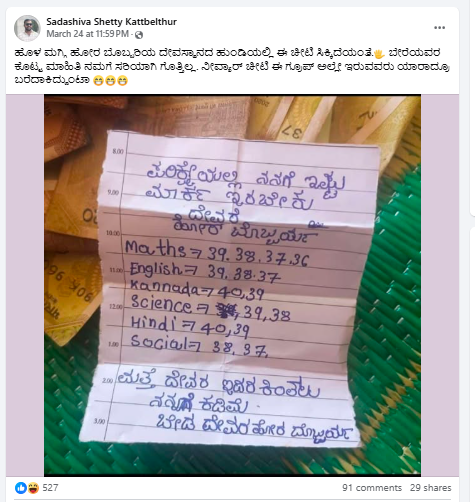 Sadashiva Shetty Kattbelthur
March 24 at 11:59 PM ·
ಹೊಳ ಮಗ್ಗಿ ಹೋರ ಬೊಬ್ಬರಿಯ ದೇವಸ್ಥಾನದ ಹುಂಡಿಯಲ್ಲಿ ಈ ಚೀಟಿ ಸಿಕ್ಕಿದೆಯಂತೆ🖐 ಬೇರೆಯವರ
ಕೊಟ್ಟ ಮಾಹಿತಿ ನಮಗೆ ಸರಿಯಾಗಿ ಗೊತ್ತಿಲ್ಲ. ನೀವ್ಯಾರ್ ಚೀಟಿ ಈ ಗ್ರೂಪ್ ಅಲ್ಲೇ ಇರುವವರು ಯಾರಾದ್ರೂ
ಬರೆದಾಕಿದ್ದುಂಟಾ 😁😁😁
37
8.00
ಪರಿಕ್ಷೇಯಲ್ಲಿ ನನಗೆ ಇಷ್ಟು
9.00
ಮಾರ್ಕ್ ಇರಬೇಕು
ದೇವರೆ
10.00
ಹೋರ ಬೊಬ್ಬರ್ಯ
Maths = 39, 38, 37, 36
11.00
English = 39, 38, 37
Kannada = 40, 39
Science = 39, 38
12.00
Hindi = 40, 39
Social = 38, 37,
1.00
2.00
ಮತ್ತೆ ದೇವರ ಇದರ ಕಿಂತಲು
ನನ್ನಗೆ ಕಡಿಮೆ.
3.00
ಬೇಡ ದೇವರ ಹೋರ ಬೊಬ್ಬರ್ಯ
527
91 comments 29 shares